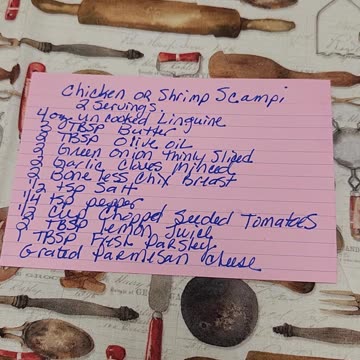 Chicken or Shrimp Scampi
2 Servings
4 oz uncooked Linguine
2 TBSP Butter
2 TBSP Olive oil
2 Green Onion thinly Sliced
2 Garlic Cloves minced
2 Boneless Chix Breast
1/2 tsp Salt
1/4 tsp pepper
Cup Chopped Seeded Tomatoes
2 TBSP Lemon Juice
1 TBSP Fresh Parsley
Grated Parmesan Cheese